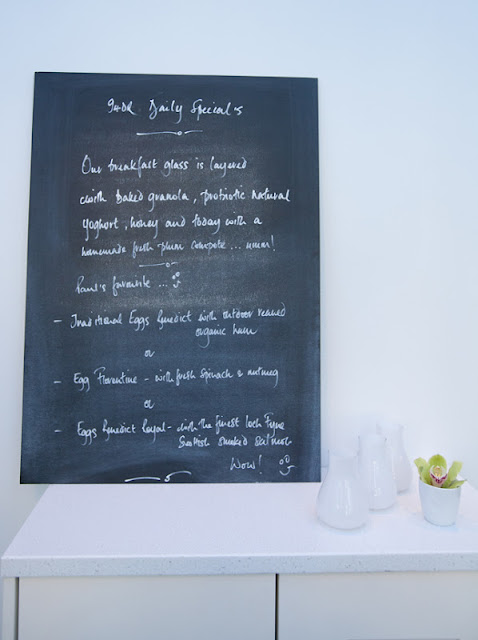 94DR Daily Special's
Our breakfast glass is layered
with baked granola, probiotic natural
yoghort, honey and today with a
homemade fresh plum compote ... mmm!
Paul's favourite ...
- Traditional Eggs Benedict with outdoor reared
organic ham
or
- Egg Florentine - with fresh spinach & nutmeg
or
- Eggs Benedict Royal - with the finest Loch Fyne
Scottish smoked salmon
Wow!